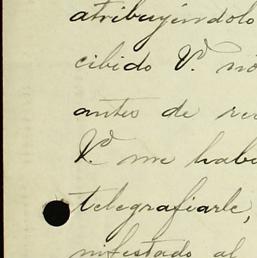 atribuyéndolo
cibido V.
antes de
V. me
telegrafiarle,
nifestado al